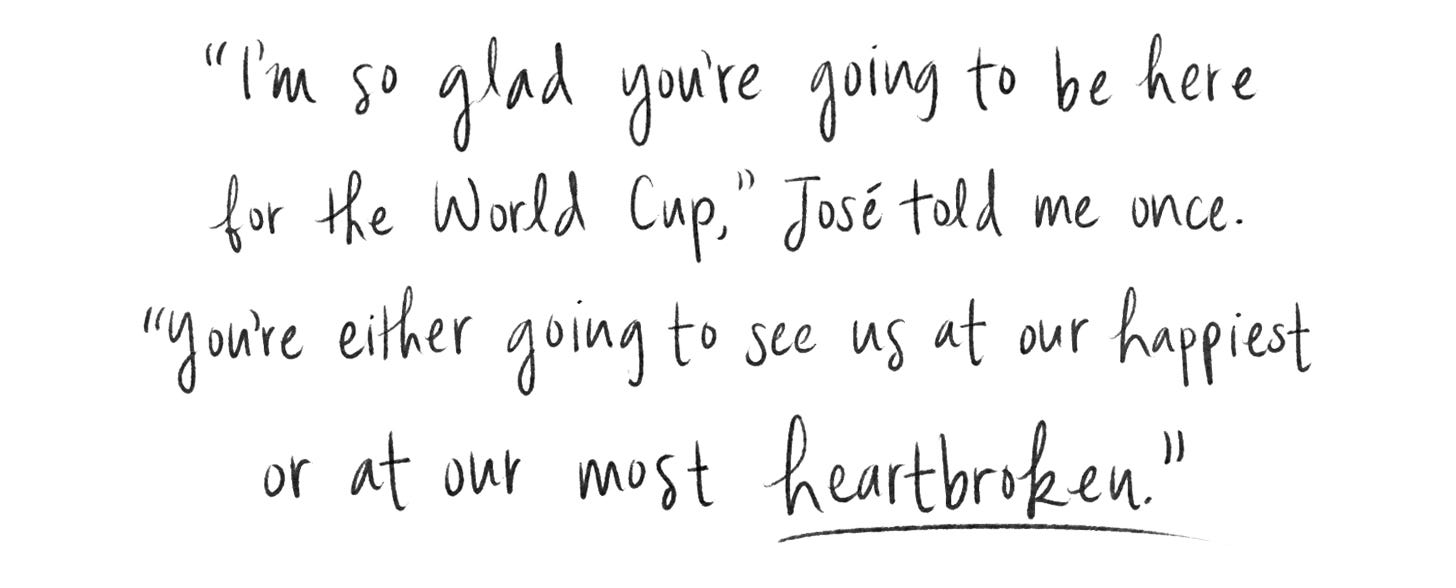 “I'm so glad you're going to be here
for the World Cup,” José told me once.
“You're either going to see us at our happiest
or at our most heartbroken.”